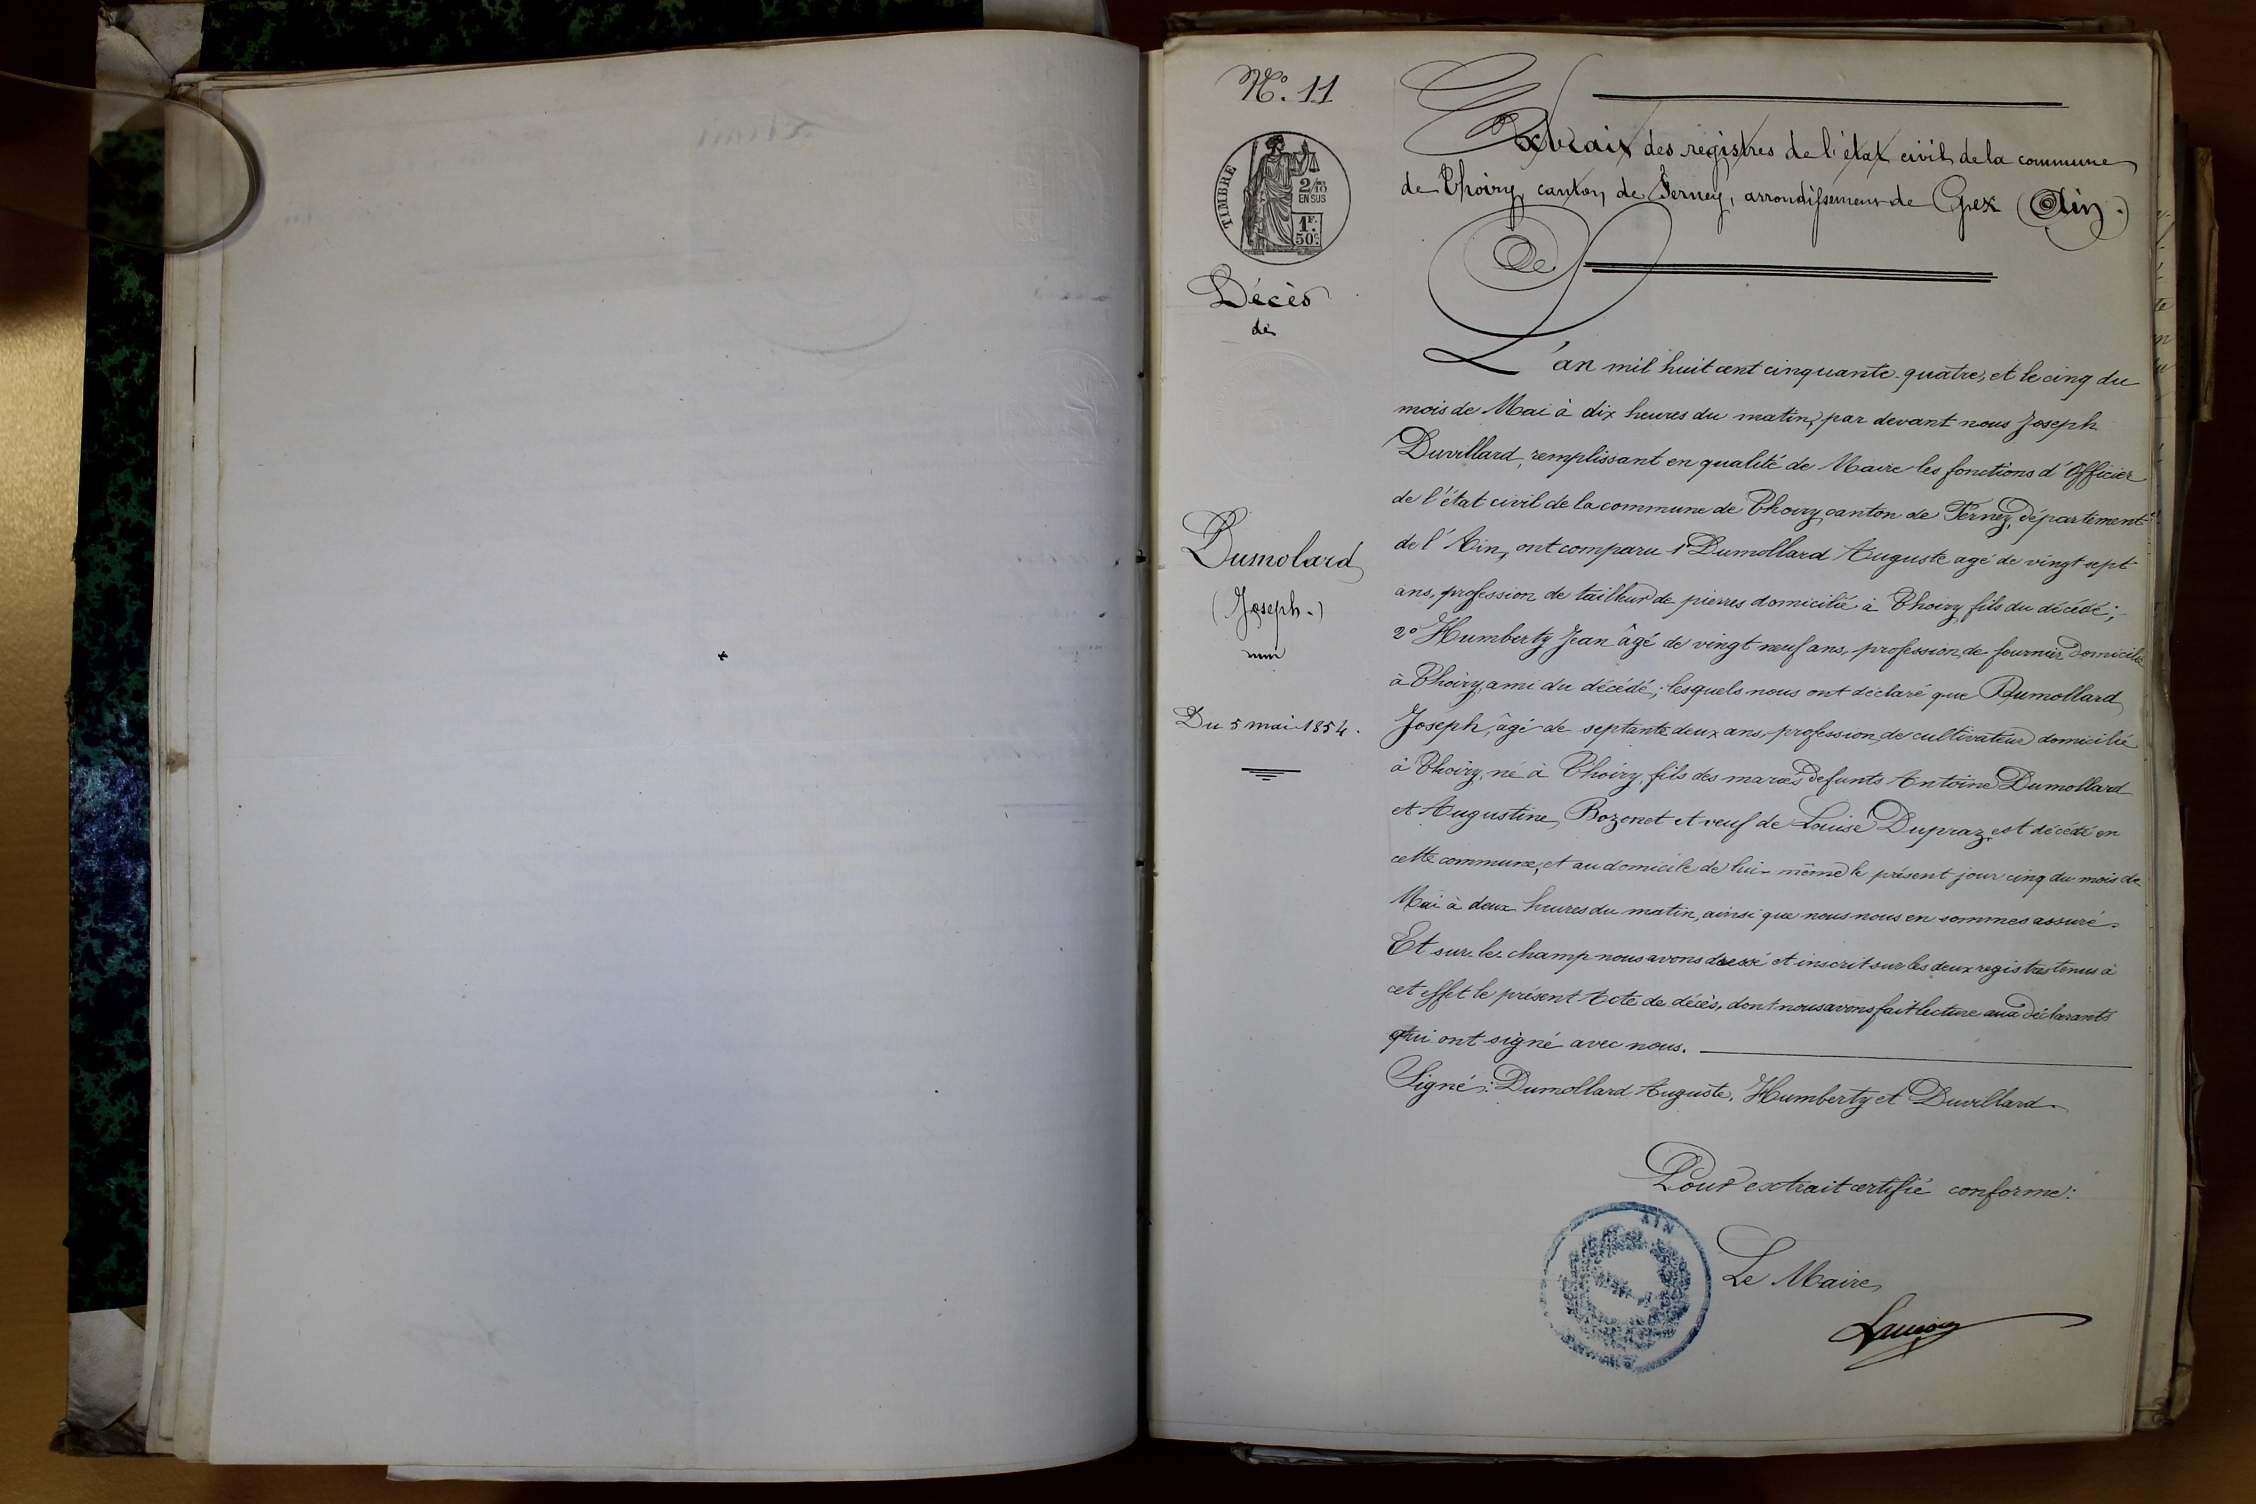 N.° 11
TIMBRE
2/10
EN SUS
1F.
50c.
Décès
de
Dumolard
(Joseph.)
Du 5 mai 1854.
Extrait des registres de l'état civil de la commune
de Thoiry, canton de Ferney, arrondissement de Gex (Ain.)
De
L'an mil huit cent cinquante-quatre, et le cinq du
mois de Mai à dix heures du matin, par devant nous Joseph
Duvillard, remplissant en qualité de Maire les fonctions d'Officier
de l'état civil de la commune de Thoiry, canton de Ferney, département
de l'Ain, ont comparu 1° Dumollard Auguste agé de vingt sept
ans, profession de tailleur de pierres domicilié à Thoiry fils du décédé;
2° Humberty Jean âgé de vingt neuf ans, profession de fournier domicilié
à Thoiry, ami du décédé; lesquels nous ont déclaré que Dumollard
Joseph, âgé de septante deux ans, profession de cultivateur domicilié
à Thoiry, né à Thoiry, fils des mariés defunts Antoine Dumollard
et Augustine Bozonet et veuf de Louise Dupraz est décédé en
cette commune, et au domicile de lui-même le présent jour cinq du mois de
Mai à deux heures du matin, ainsi que nous nous en sommes assuré.
Et sur-le-champ nous avons dressé et inscrit sur les deux registres tenus à
cet effet le présent Acte de décès, dont nous avons fait lecture aux déclarants
qui ont signé avec nous.
Signé: Dumollard Auguste, Humberty et Duvillard.
Pour extrait certifié conforme:
AIN
Le Maire